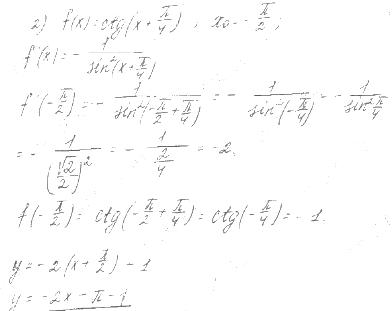 2) f(x) = ctg(x + π/4), x₀ = -π/2;
f'(x) = - 1/sin²(x + π/4)
f'(-π/2) = - 1/sin²(-π/2 + π/4) = - 1/sin²(-π/4) = - 1/sin² π/4
= - 1/(√2/2)² = - 1/(2/4) = -2.
f(-π/2) = ctg(-π/2 + π/4) = ctg(-π/4) = -1.
y = -2(x + π/2) - 1
y = -2x - π - 1